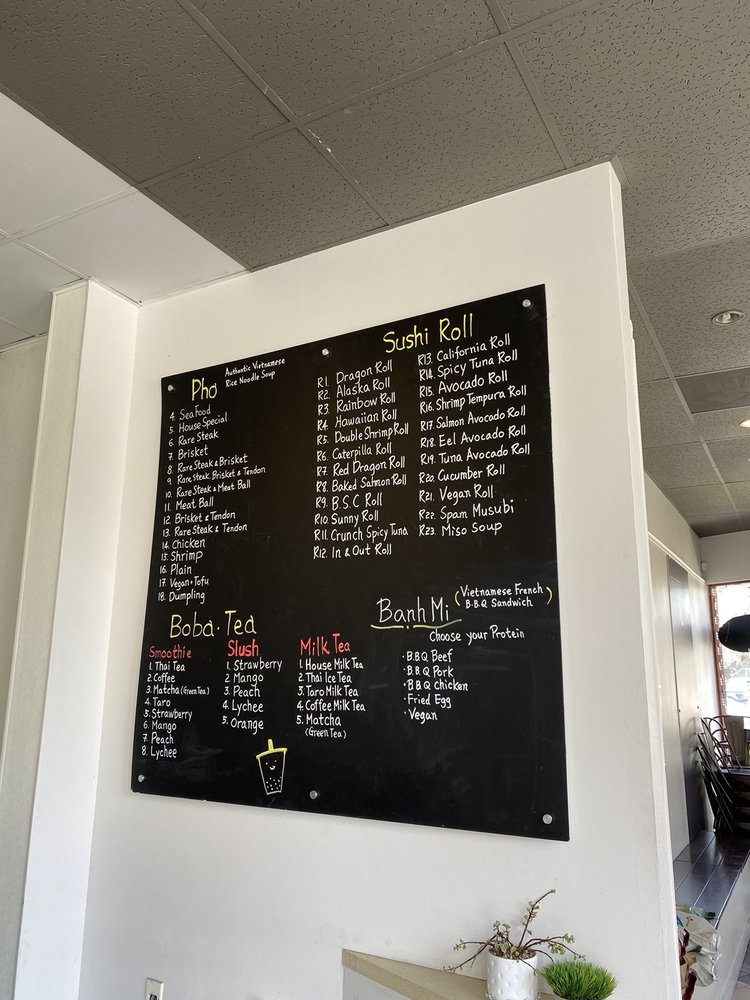 Pho
Authentic Vietnamese
Rice Noodle Soup
4. Sea Food
5. House Special
6. Rare Steak
7. Brisket
8. Rare Steak & Brisket
9. Rare Steak, Brisket & Tendon
10. Rare Steak & Meat Ball
11. Meat Ball
12. Brisket & Tendon
13. Rare Steak & Tendon
14. Chicken
15. Shrimp
16. Plain
17. Vegan + Tofu
18. Dumpling
Sushi Roll
R1. Dragon Roll
R2. Alaska Roll
R3. Rainbow Roll
R4. Hawaiian Roll
R5. Double Shrimp Roll
R6. Caterpilla Roll
R7. Red Dragon Roll
R8. Baked Salmon Roll
R9. B.S.C Roll
R10. Sunny Roll
R11. Crunch Spicy Tuna
R12. In & Out Roll
R13. California Roll
R14. Spicy Tuna Roll
R15. Avocado Roll
R16. Shrimp Tempura Roll
R17. Salmon Avocado Roll
R18. Eel Avocado Roll
R19. Tuna Avocado Roll
R20. Cucumber Roll
R21. Vegan Roll
R22. Spam Musubi
R23. Miso Soup
Boba • Tea
Smoothie
1. Thai Tea
2. Coffee
3. Matcha (Green Tea)
4. Taro
5. Strawberry
6. Mango
7. Peach
8. Lychee
Slush
1. Strawberry
2. Mango
3. Peach
4. Lychee
5. Orange
Milk Tea
1. House Milk Tea
2. Thai Ice Tea
3. Taro Milk Tea
4. Coffee Milk Tea
5. Matcha
(Green Tea)
Banh Mi (Vietnamese French
B.B.Q Sandwich)
Choose your Protein
• B.B.Q Beef
• B.B.Q Pork
• B.B.Q Chicken
• Fried Egg
• Vegan